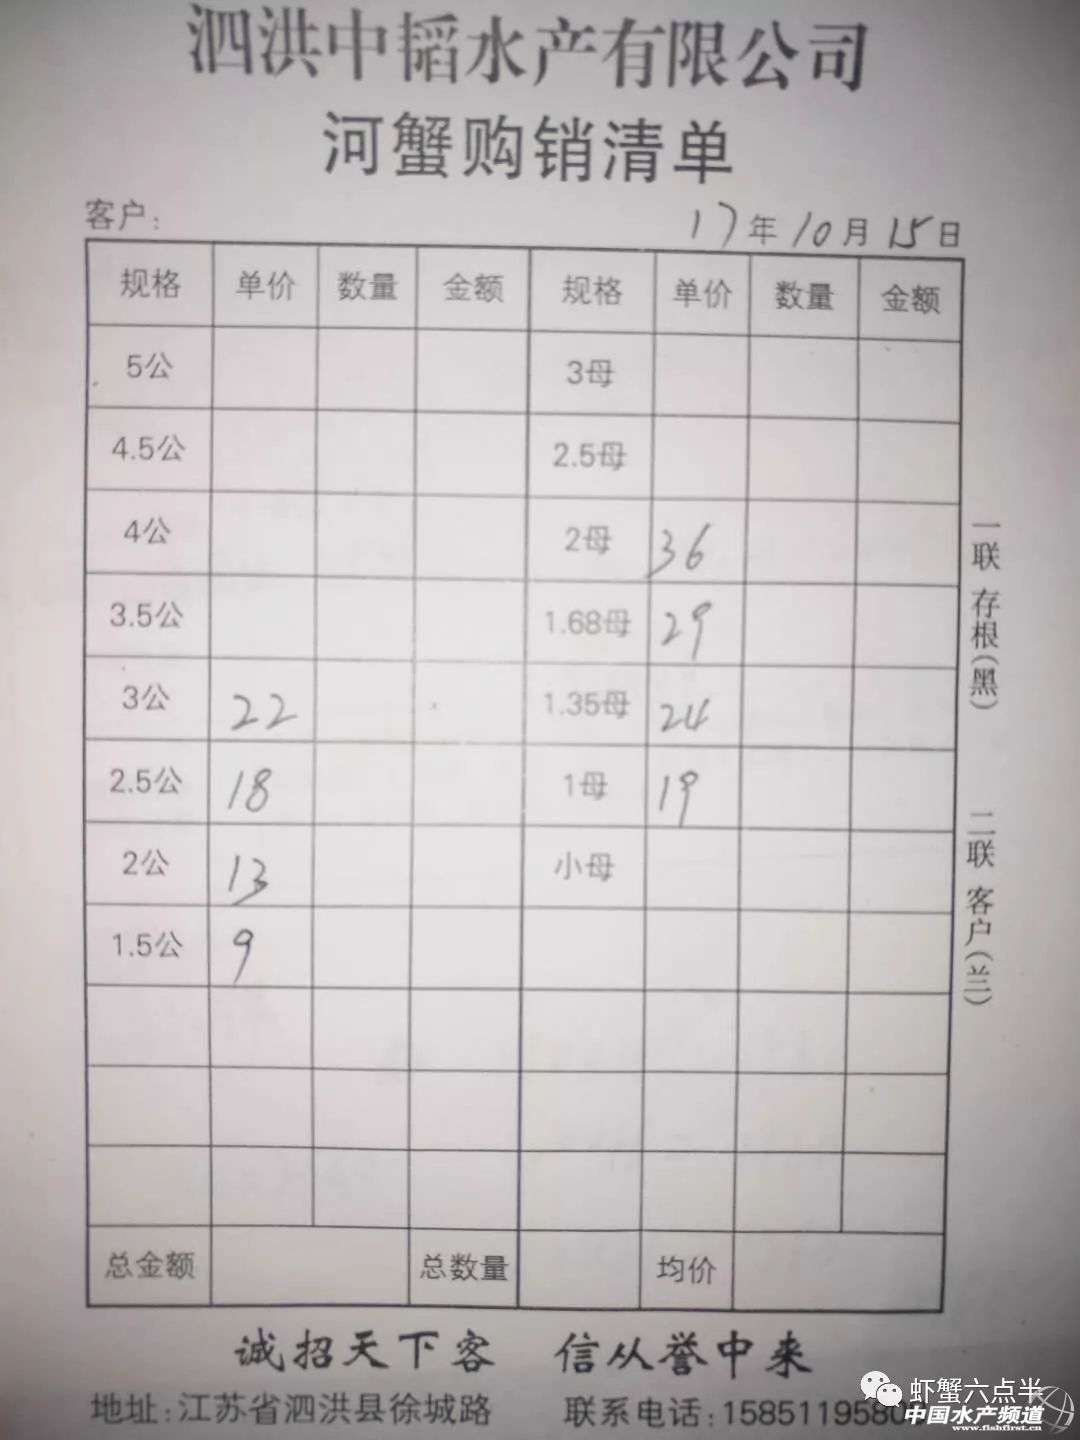 泗洪中韬水产有限公司
河蟹购销清单
客户: 17年10月15日
规格 单价 数量 金额 规格 单价 数量 金额
5公 3母
4.5公 2.5母
4公 2母 36
3.5公 1.68母 29
3公 22 1.35母 24
2.5公 18 1母 19
2公 13 小母
1.5公 9
总金额 总数量 均价
一联 存根(黑) 二联 客户(兰)
诚招天下客 信从誉中来
地址:江苏省泗洪县徐城路 联系电话:1585119580
虾蟹六点半
中国水产频道
www.fishfirst.cn